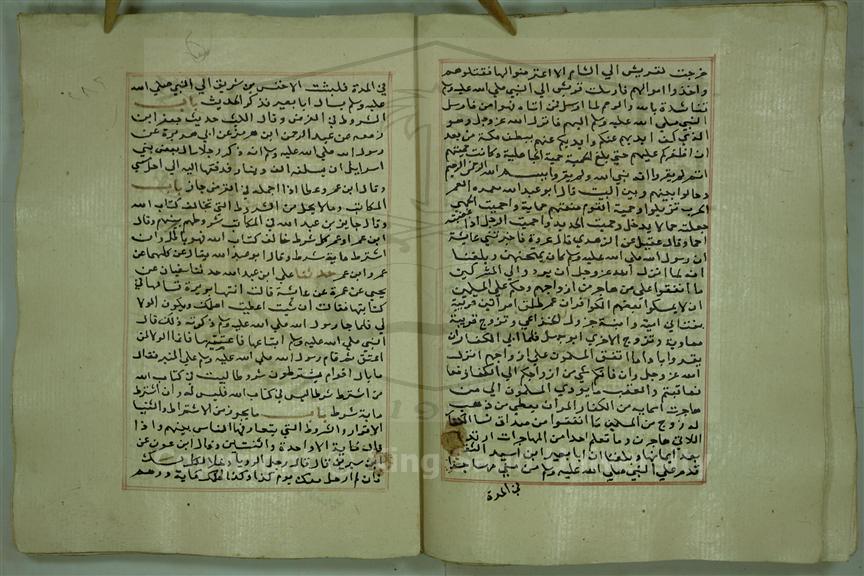 خرجت لقريش الي الشام الا اعترضوا لها فقتلوهم
واخذوا اموالهم فارسلت قريش الي النبي صلي الله عليه وسلم
تناشده بالله والرحم لما ارسل فمن اتاه فهو امن فارسل
النبي صلي الله عليه وسلم اليهم فانزل الله عز وجل وهو
الذي كف ايديهم عنكم وايديكم عنهم ببطن مكة من بعد
ان اظفركم عليهم حتي بلغ الحمية حمية الجاهلية وكانت حميتهم
انهم لم يقروا انه نبي الله ولم يقروا ببسم الله الرحمن الرحيم
وحالوا بينهم وبين البيت قال ابو عبد الله معرة العر
الجرب تزيلوا وحمية القوم منعتهم حماية واحميت الحمي
جعلته حما لا يدخل وحميت الحديد واحميت الرجل اذا اغضبته
احما وقال عقيل عن الزهري قال عروة فاخبرتني عائشة
ان رسول الله صلي الله عليه وسلم كان يمتحنهن وبلغنا
انه لما انزل الله عز وجل ان يردوا الي المشركين
ما انفقوا علي من هاجر من ازواجهم وحكم علي المسلمين
ان لا يمسكوا بعصم الكوافر ان عمر طلق امراتين قريبة
بنت ابي امية وابنة جرول الخزاعي وتزوج قريبة
معاوية وتزوج الاخري ابو جهم فلما ابي الكفار ان
يقروا باداء ما انفق المسلمون علي ازواجهم انزل
الله عز وجل وان فاتكم شي من ازواجكم الي الكفار فعا
فعاقبتم والعقب ما يؤدي المسلمون الي من
هاجرت امراته من الكفار فامر ان يعطي من ذهب
له زوج من المسلمين ما انفق من صداق نسا الكفار
اللائي هاجرن وما نعلم احدا من المهاجرات ارتدت
بعد ايمانها وبلغنا ان ابا بصير ابن اسيد الثقفي
قدم علي النبي صلي الله عليه وسلم من مني مهاجرا
في المدة
في المدة فكتب الاخنس بن شريق الي النبي صلي الله
عليه وسلم يسال ابا بصير فذكر الحديث باب
الشروط في القرض وقال الليث حديث جعفر ابن
ربيعه عن عبد الرحمن ابن هرمز عن ابي هريرة عن
رسول الله صلي الله عليه وسلم انه ذكر رجلا سال بعض بني
اسرايل ان يسلفه الف دينار فدفعها اليه الي اجل مسمي
وقال ابن عمر وعطا اذا اجله في القرض جاز باب
المكاتب وما لا يحل من الشروط التي تخالف كتاب الله
وقال جابر بن عبد الله في المكاتب شروطهم بينهم وقال
ابن عمر او عمر كل شرط خالف كتاب الله فهو باطل وان
اشترط ماية شرط وقال ابو عبد الله يقال عن كليهما عن
عمر وابن عمر حدثنا علي ابن عبد الله حدثنا سفيان عن
يحيي عن عمرة عن عائشة قالت اتتها بريرة تسالها في
كتابتها فقالت ان شئت اعطيت اهلك ويكون الولا
لي فلما جا رسول الله صلي الله عليه وسلم ذكرته ذلك قال
النبي صلي الله عليه وسلم ابتاعيها فاعتقيها فانما الولا لمن
اعتق ثم قام رسول الله صلي الله عليه وسلم علي المنبر فقال
ما بال اقوام يشترطون شروطا ليست في كتاب الله
من اشترط شرطا ليس في كتاب الله فليس له وان اشترط
ماية شرط باب ما يجوز من الاشتراط والثنيا
الاقرار والشروط التي يتعارفها الناس بينهم واذا
قال ماية الا واحدة او ثنتين وقال ابن عون عن
ابن سيرين قال قال رجل لكريه
فان لم ارحل معك يوم كذا وكذا فلك ماية درهم